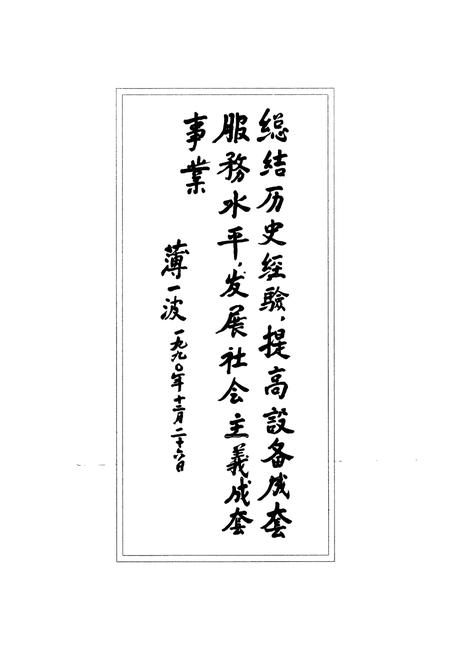 总结历史經驗，提高設备成套
服務水平，发展社会主義成套
事業
薄一波 一九九〇年十二月二十六日